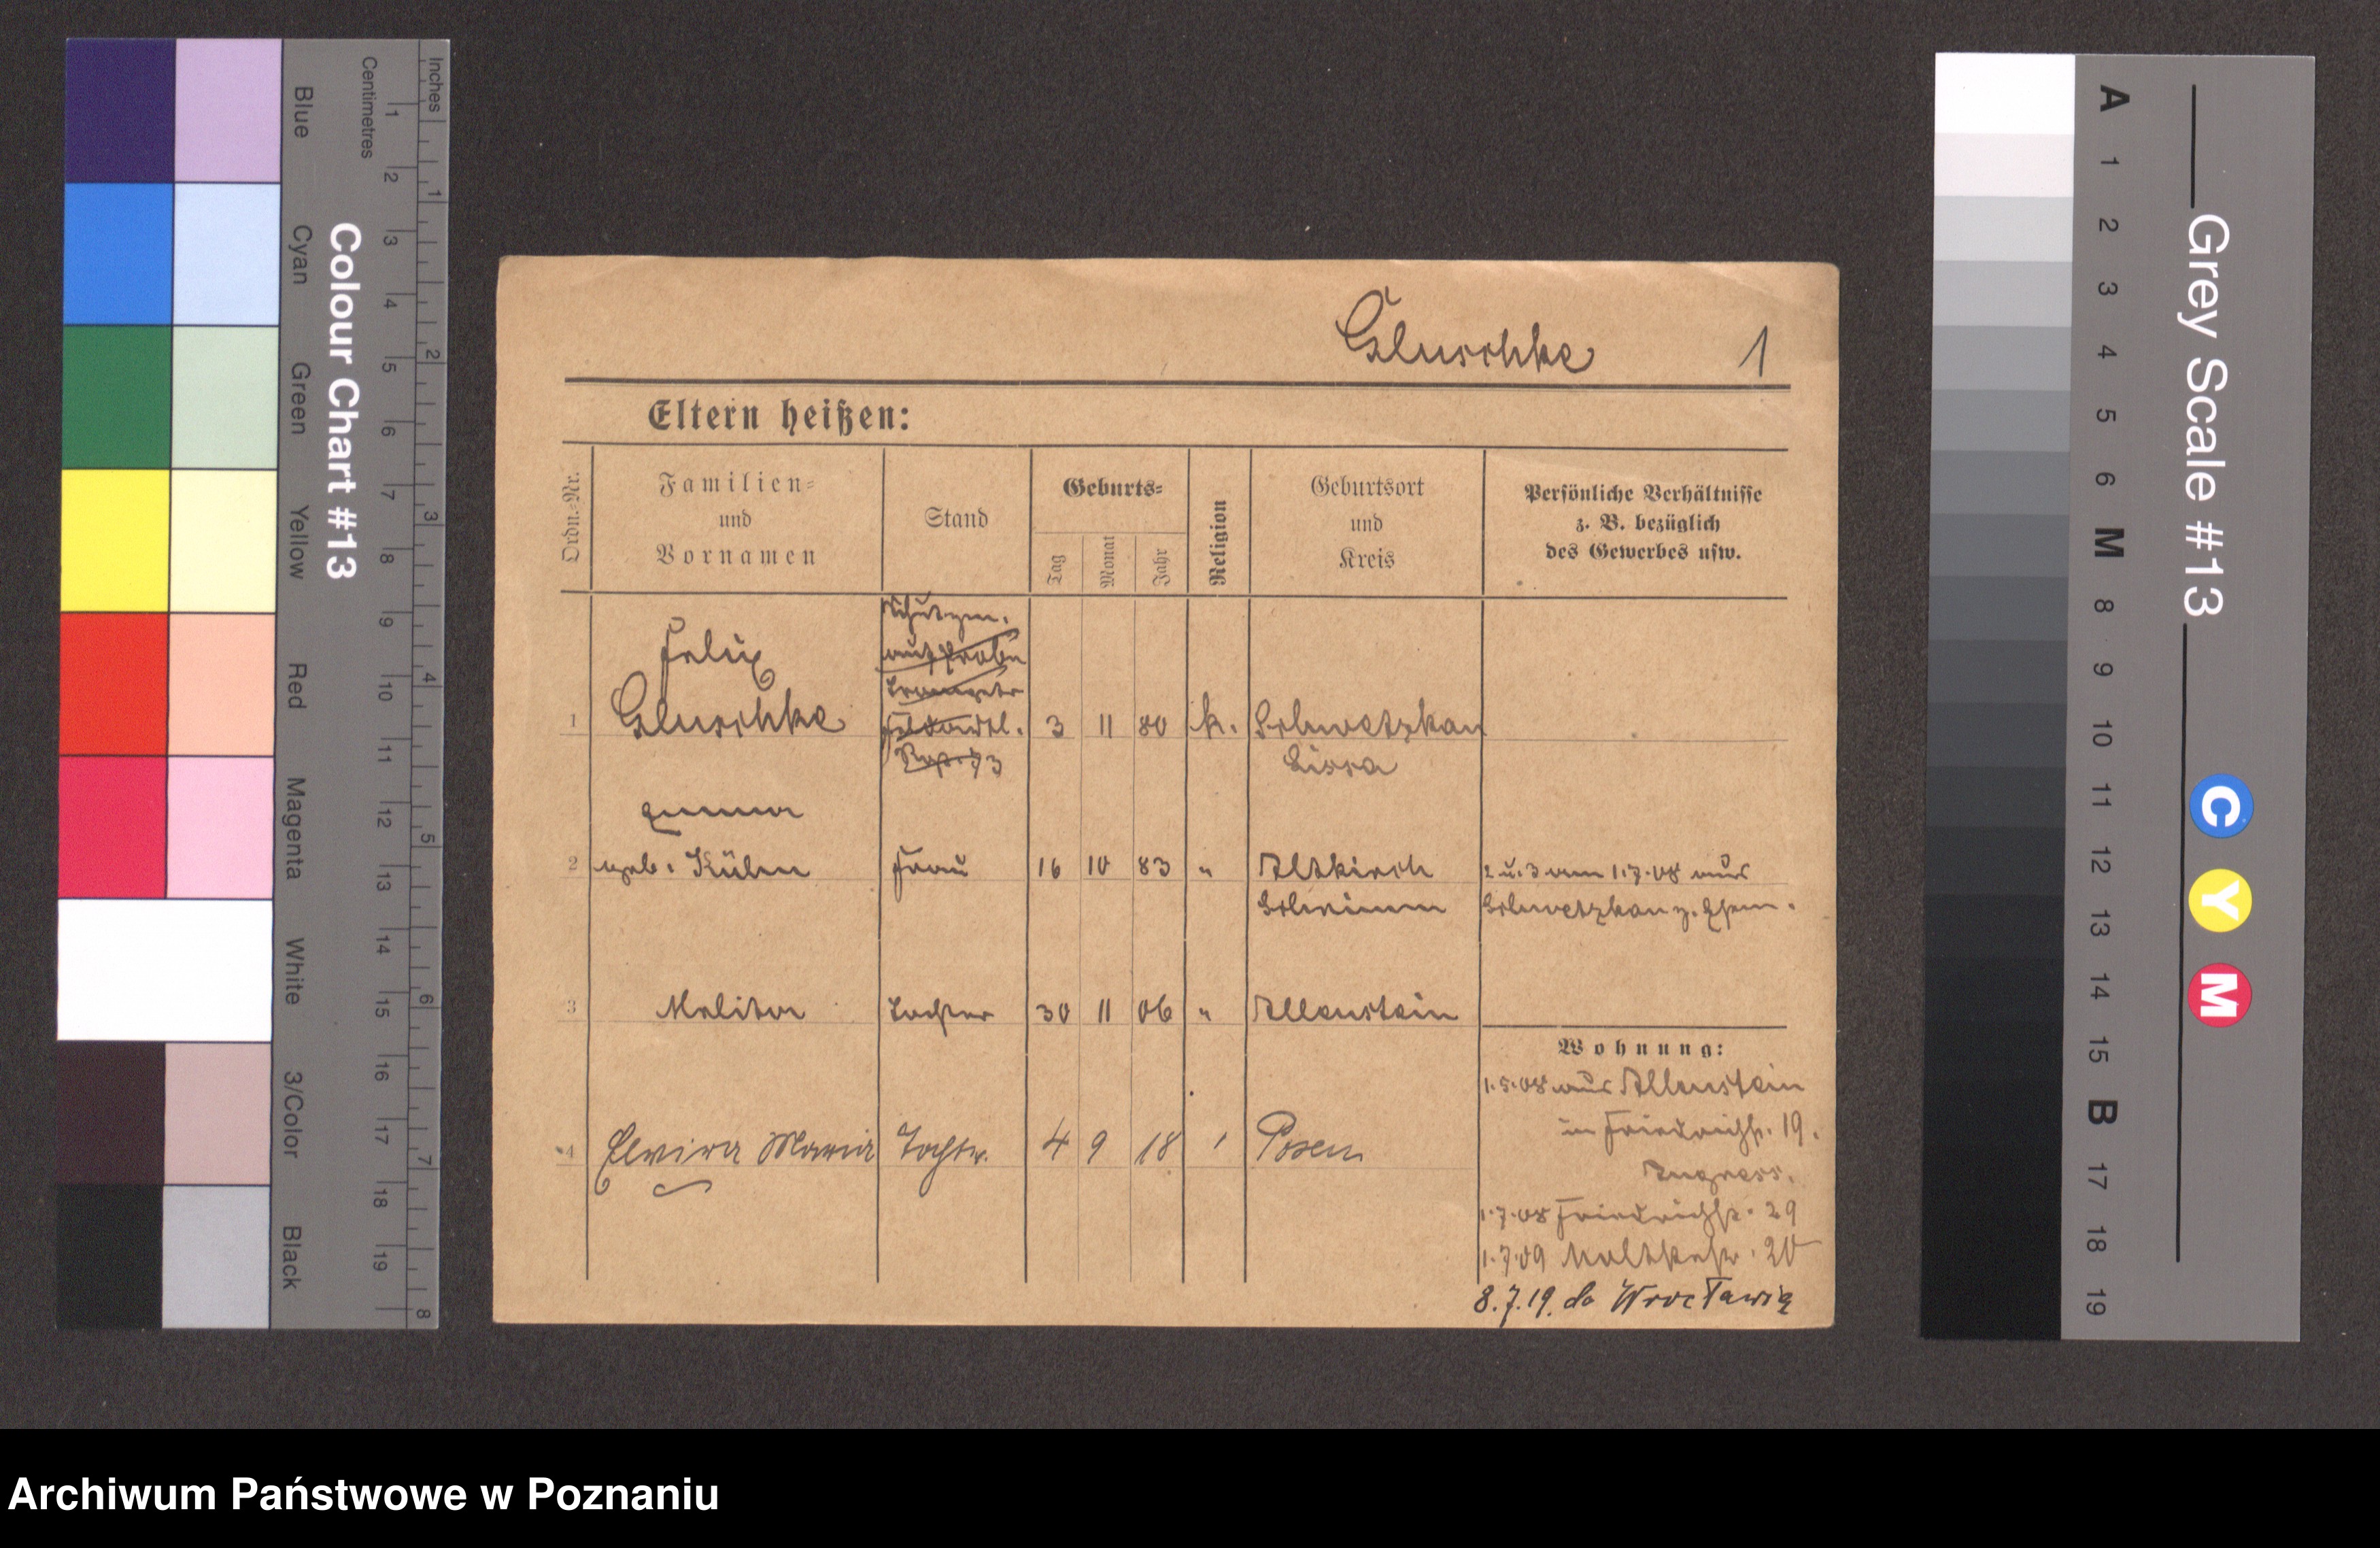 Blue
Cyan
Green
Yellow
Red
Magenta
White
3/Color
Black
Colour Chart #13
Centimetres
1 2 3 4 5 6 7 8 9 10 11 12 13 14 15 16 17 18 19
Inches
1 2 3 4 5 6 7 8
Gluschke 1
Eltern heißen:
Ordn.-Nr.
Familien-
und
Vornamen
Stand
Geburts-
Tag
Monat
Jahr
Religion
Geburtsort
und
Kreis
Persönliche Verhältnisse
z. B. bezüglich
des Gewerbes usw.
Schutzm.
auf Probe
Felix
1 Gluschke 3 11 80 k. Schwetzkau
Lissa
2 geb. Kühn Frau 16 10 83 " Altkirch
2 u. 3 am 1.7.08 aus
Schwetzkau z. Ehem.
3 Melitta Tochter 30 11 06 " Allenstein
4 Elwira Maria Tochter 4 9 18 Posen
Wohnung:
1.5.08 aus Allenstein
in Friedrichstr. 19.
1.7.08 Friedrichstr. 29
1.7.09 Moltkestr. 20
8.7.19. do Wrocławia
Grey Scale #13
A 1 2 3 4 5 6 M 8 9 10 11 12 13 14 15 B 17 18 19
C
Y
M
Archiwum Państwowe w Poznaniu